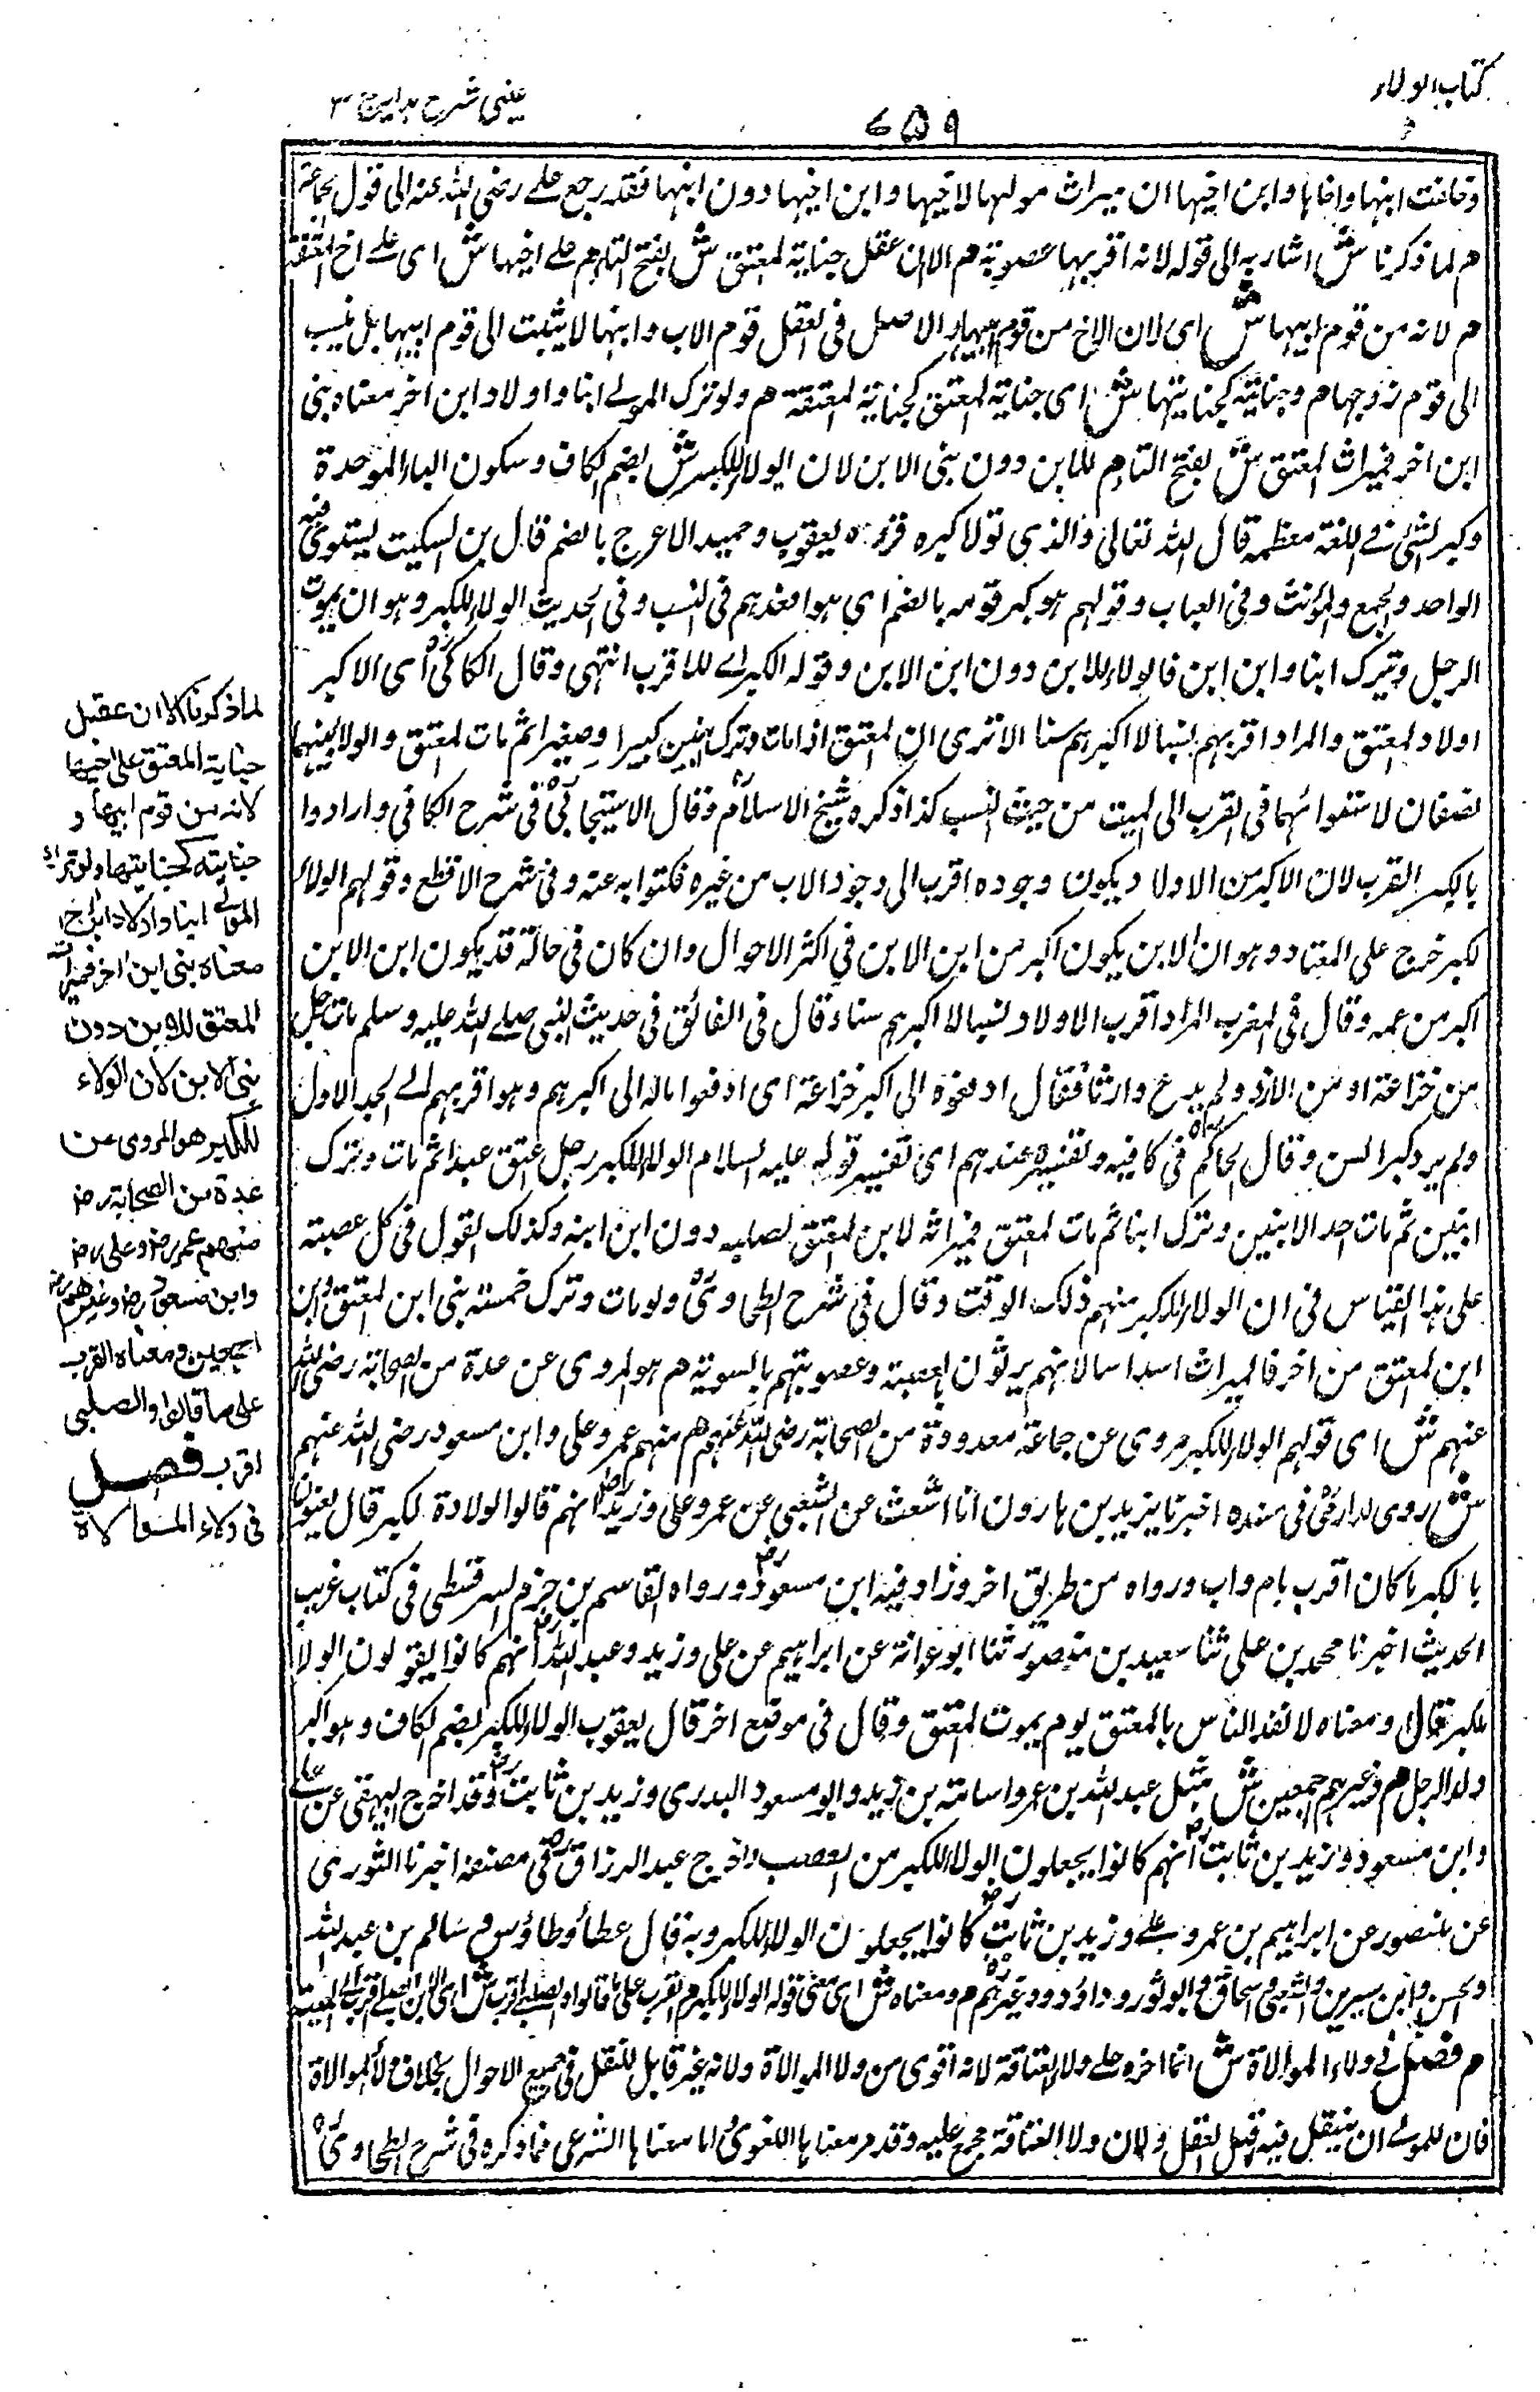 كتاب الولاء
٦٥٩
عینی شرح ہدایہ ج ٣
وخلفت ابنها واخاها وابن اخيها ان ميراث موليها لاخيها وابن اخيها دون ابنها فقد رجع علے رضی اللہ عنہ الی قول الجماعة
م لما ذكرنا ش اشار به الی قوله لانه اقربها عصوبة م الا ان عقل جناية المعتق ش بفتح التاء م علے اخيها ش ای علے اخ المعتقة
م لانه من قوم ابيها ش ای لان الاخ من قوم ابيها والاصل فی العقل قوم الاب وابنها لا يثبت الی قوم ابيها بل ينسب
الی قوم زوجها م وجنايته كجنايتها ش ای جناية المعتق كجناية المعتقة م ولو ترك المولے ابنا واولاد ابن اخر معناه بنی
ابن اخر فميراث المعتق ش بفتح التاء م للابن دون بنی الابن لان الولاء للكبر ش بضم الكاف وسكون الباء الموحدة
وكبر الشئ فے اللغة معظمه قال الله تعالی والذی تولا كبره قرءه يعقوب وحميد الاعرج بالضم قال بن السكيت يستوی فيه
الواحد والجمع والمؤنث وفی العباب وقولهم هو كبر قومه بالضم ای هو اقعدهم فی النسب وفی الحديث الولاء للكبر وهو ان يموت
الرجل ويترك ابنا وابن ابن فالولاء للابن دون ابن الابن وقوله الكبر اے للاقرب انتهی وقال الكاكی ای الاكبر
اولاد المعتق والمراد اقربهم نسبا لا اكبرهم سنا الا تری ان المعتق اذا مات وترك ابنين كبيرا وصغيرا ثم مات المعتق والولاء بينهما
نصفان لاستوائهما فی القرب الی الميت من حيث النسب كذا ذكره شيخ الاسلام وقال الاسبيجابی فی شرح الكافی وارادوا
بالكبر القرب لان الاكبر من الاولاد يكون وجوده اقرب الی وجود الاب من غيره فكنوا به عنه وفی شرح الاقطع وقولهم الولاء
لكبر خرج علی المعتاد وهو ان الابن يكون اكبر من ابن الابن فی اكثر الاحوال وان كان فی حالة قد يكون ابن الابن
اكبر من عمه وقال فی المغرب المراد اقرب الاولاد نسبا لا اكبرهم سنا وقال فی الفائق فی حديث النبی صلے الله عليه وسلم مات رجل
من خزاعة او من الازد ولم يدع وارثا فقال ادفعوه الی اكبر خزاعة ای ادفعوا ماله الی اكبرهم وهو اقربهم الے الجد الاول
ولم يرد كبر السن وقال الحاكم فی كافيه وتفسيره عندهم ای تفسير قوله عليه السلام الولاء للكبر رجل عتق عبدا ثم مات وترك
ابنين ثم مات احد الابنين وترك ابنا ثم مات المعتق فميراثه لابن المعتق لصلبه دون ابن ابنه وكذلك القول فی كل عصبته
علی هذا القياس فی ان الولاء للكبر منهم ذلك الوقت وقال فی شرح الطحاوی ولو مات وترك خمسة بنی ابن المعتق وابن
ابن المعتق من اخر فالميراث اسداسا لانهم يرثون بالعصبة وعصوبتهم بالسوية م هو المروی عن عدة من الصحابة رضی الله
عنهم ش ای قولهم الولاء للكبر مروی عن جماعة معدودة من الصحابة رضی الله عنهم م منهم عمر وعلی وابن مسعود رضی الله عنهم
ش روی الدارمی فی مسنده اخبرنا يزيد بن هارون انا اشعث عن الشعبی عن عمر وعلی وزيد انهم قالوا الولادة لكبر قال يعنون
بالكبر ما كان اقرب بام واب ورواه من طريق اخر وزاد فيه ابن مسعود ورواه القاسم بن حزم السرقسطی فی كتاب غريب
الحديث اخبرنا محمد بن علی ثنا سعيد بن منصور ثنا ابو عوانة عن ابراهيم عن علی وزيد وعبد الله انهم كانوا يقولون الولاء
للكبر قال ومعناه لاقعد الناس بالمعتق يوم يموت المعتق وقال فی موضع اخر قال يعقوب الولاء للكبر بضم الكاف وهو اكبر
ولد الرجل م وغيرهم اجمعين ش مثل عبد الله بن عمر واسامة بن زيد وابو مسعود البدری وزيد بن ثابت وقد اخرج البيهقی عن علے
وابن مسعود وزيد بن ثابت انهم كانوا يجعلون الولاء للكبر من العصب واخرج عبد الرزاق فی مصنفه اخبرنا الثوری
عن منصور عن ابراهيم بن عمر وعلے وزيد بن ثابت كانوا يجعلون الولاء للكبر وبه قال عطاء وطاؤس وسالم بن عبد الله
والحسن وابن سيرين والشعبی واسحاق وابو ثور وداؤد وغيرهم م ومعناه ش ای معنی قوله الولاء للكبر م القرب علی ما قالوا والصلبے اقرب ش ای الابن الصلبے اقرب الے الميت
م فصل فے ولاء الموالاة ش انما اخره علے ولاء العتاقة لانه اقوی من ولاء الموالاة ولانه غير قابل للنقل فی جميع الاحوال بخلاف ولاء الموالاة
فان للمولے ان ينتقل فيه قبل العقل ولان ولاء العتاقة مجمع عليه وقد مر معناها اللغوی اما معناها الشرعی فما ذكره فی شرح الطحاوی
لما ذكرنا الا ان عقل
جناية المعتق علی اخيها
لانه من قوم ابيها و
جنايته كجنايتها ولو ترك
المولے ابنا واولاد ابن اخر
معناه بنی ابن اخر فميراث
المعتق للابن دون
بنی الابن لان الولاء
للكبر هو المروی عن
عدة من الصحابة رض
منهم عمر رض وعلی رض
وابن مسعود رض وغيرهم رض
اجمعين ومعناه القرب
علی ما قالوا والصلبی
اقرب فصل
فی ولاء الموالاة